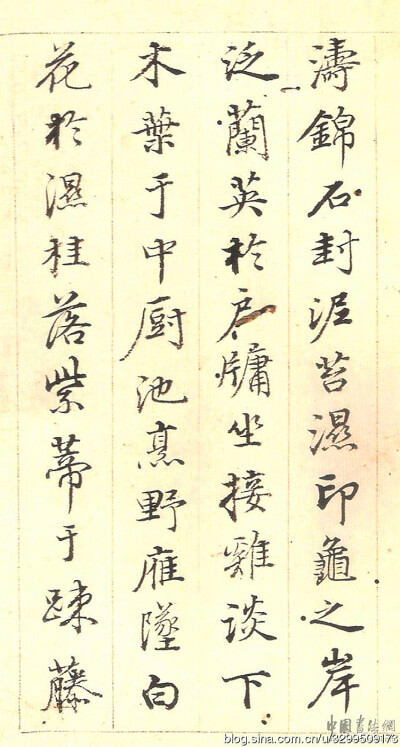 濤錦石封泥苔濕印龜之岸
泛蘭英於戶牖坐接雞談下
木葉于中厨池烹野雁墜白
花於濕桂落紫蒂于疎藤
中國書法網
blog.sina.com.cn/u/3299509173